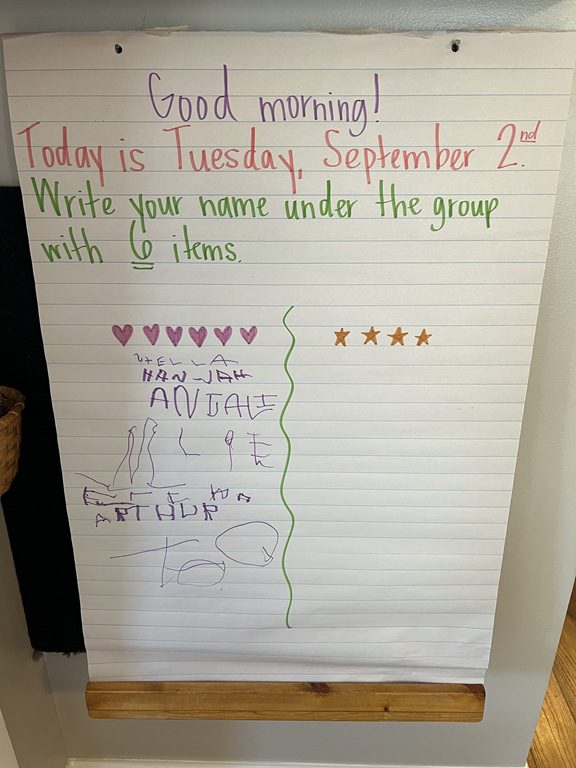 Good morning!
Today is Tuesday, September 2nd.
Write your name under the group
with 6 items.
STELLA
HANNAH
ARTHUR